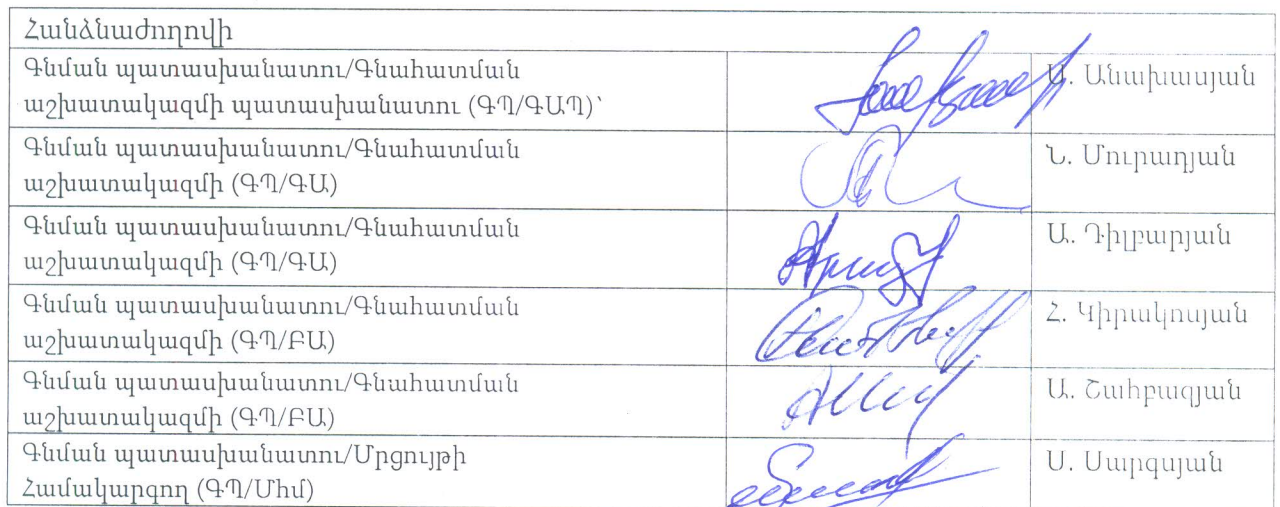 Հանձնաժողովի
Գնման պատասխանատու/Գնահատման
աշխատակազմի պատասխանատու (ԳՊ/ԳԱՊ)՝
Ա. Անախասյան
Գնման պատասխանատու/Գնահատման
աշխատակազմի (ԳՊ/ԳԱ)
Ն. Մուրադյան
Գնման պատասխանատու/Գնահատման
աշխատակազմի (ԳՊ/ԳԱ)
Ա. Դիլբարյան
Գնման պատասխանատու/Գնահատման
աշխատակազմի (ԳՊ/ԲԱ)
Հ. Կիրակոսյան
Գնման պատասխանատու/Գնահատման
աշխատակազմի (ԳՊ/ԲԱ)
Ա. Շահբազյան
Գնման պատասխանատու/Մրցույթի
Համակարգող (ԳՊ/Մհմ)
Ս. Սարգսյան